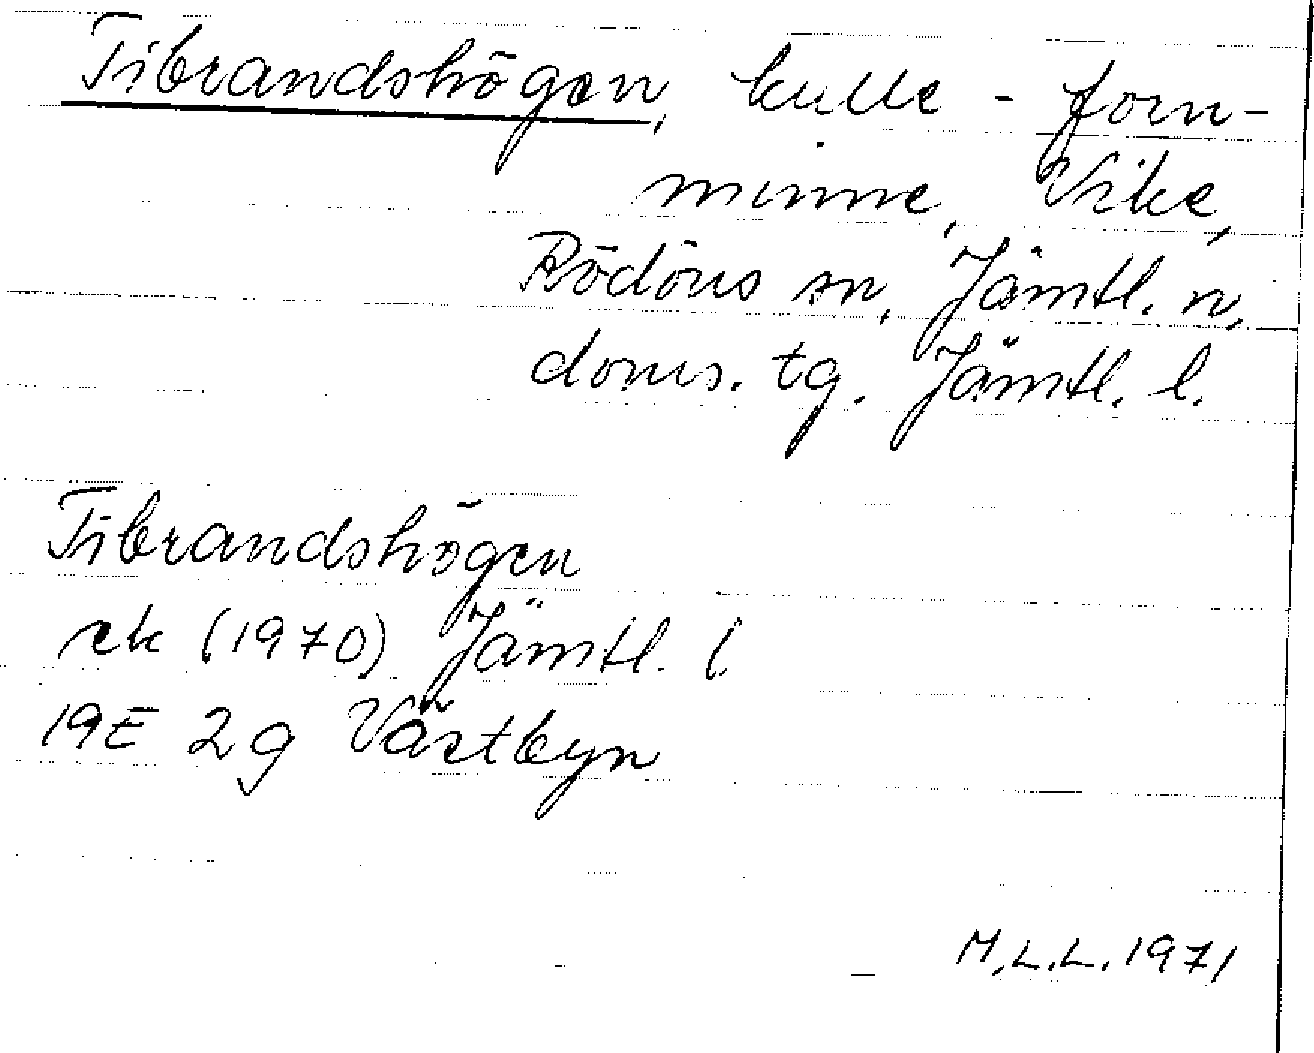 Tibrandshögen, kulle - forn-
minne, Vike,
Rödöns sn, Jämtl. n.
doms. tg. Jämtl. l.
Tibrandshögen
ek (1970) Jämtl. l.
19E 2g Västbyn
M.L.L. 1971